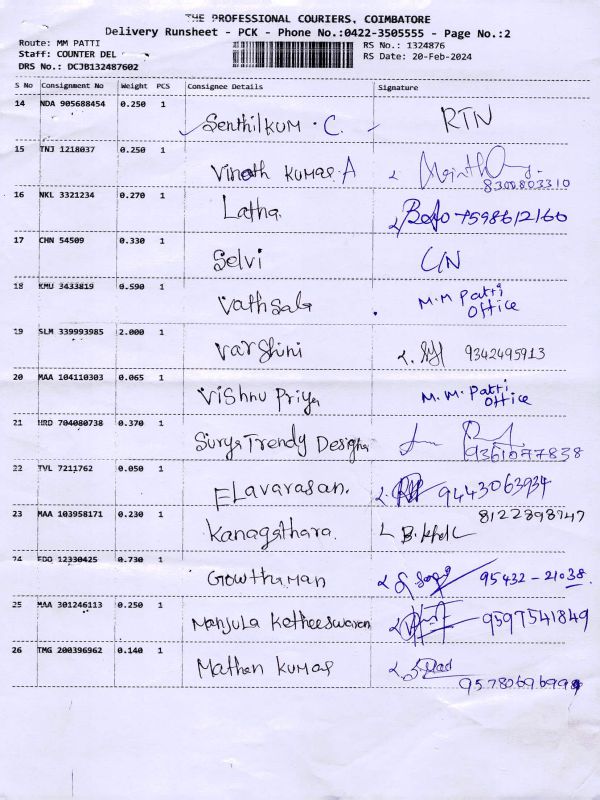 THE PROFESSIONAL COURIERS, COIMBATORE
Delivery Runsheet - PCK - Phone No.:0422-3505555 - Page No.:2
Route: MM PATTI
Staff: COUNTER DEL
DRS No.: DCJB132487602
RS No.: 1324876
RS Date: 20-Feb-2024
S No Consignment No Weight PCS Consignee Details Signature
14 NDA 905688454 0.250 1 Senthilkum. C. RTN
15 TNJ 1218037 0.250 1 Vinoth Kumar. A
8300803310
16 NKL 3321234 0.270 1 Latha. 7598612160
17 CHN 54509 0.330 1 Selvi C/N
18 KMU 3433819 0.590 1 Vathsala M.M Patti
Office
19 SLM 339993985 2.000 1 Varshini 9342495913
20 MAA 104110303 0.065 1 Vishnu Priya M.M. Patti
Office
21 HRD 704080738 0.370 1 Surya Trendy Designer
9361077838
22 TVL 7211762 0.050 1 Elavarasan. 9443063934
23 MAA 103958171 0.230 1 Kanagathara.
8122898947
24 EDO 12330425 0.730 1 Gowthaman 95432-21038.
25 MAA 301246113 0.250 1 Manjula Ketheeswaran 9597541849
26 TMG 200396962 0.140 1 Mathan Kumar